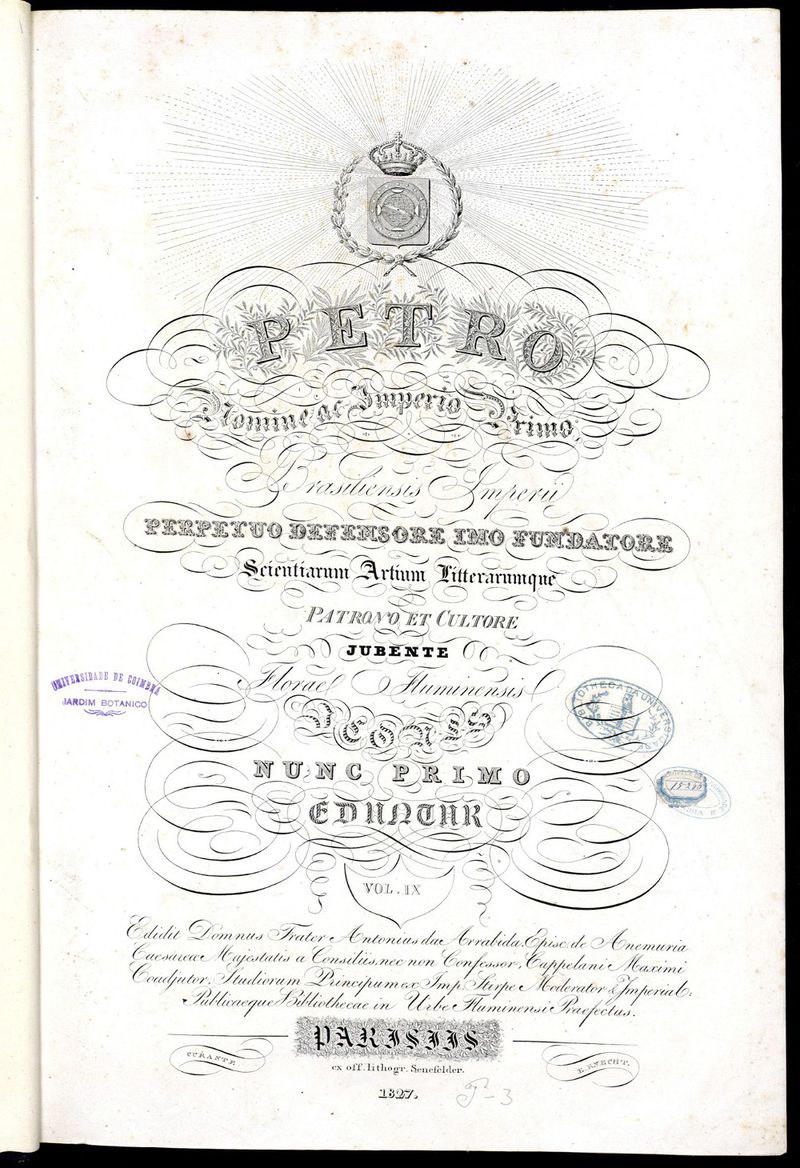 PETRO
Nomine ac Imperio Primo,
Brasiliensis Imperii
PERPETUO DEFENSORE IMO FUNDATORE
Scientiarum Artium Litterarumque
PATRONO ET CULTORE
JUBENTE
Florae Fluminensis
ICONES
NUNC PRIMO
EDUNTUR
VOL. IX
Edidit Domnus Frater Antonius da Arrabida, Episc. de Anemuria
Caesareae Majestatis a Consiliis, nec non Confessor, Cappelani Maximi
Coadjutor, Studiorum Principum ex Imp. Stirpe Moderator & Imperial:
Publicaeque Bibliothecae in Urbe Fluminensi Praefectus.
PARISIIS
CURANTE
E. KNECHT.
ex off. lithogr. Senefelder.
1827.
UNIVERSIDADE DE COIMBRA
JARDIM BOTANICO